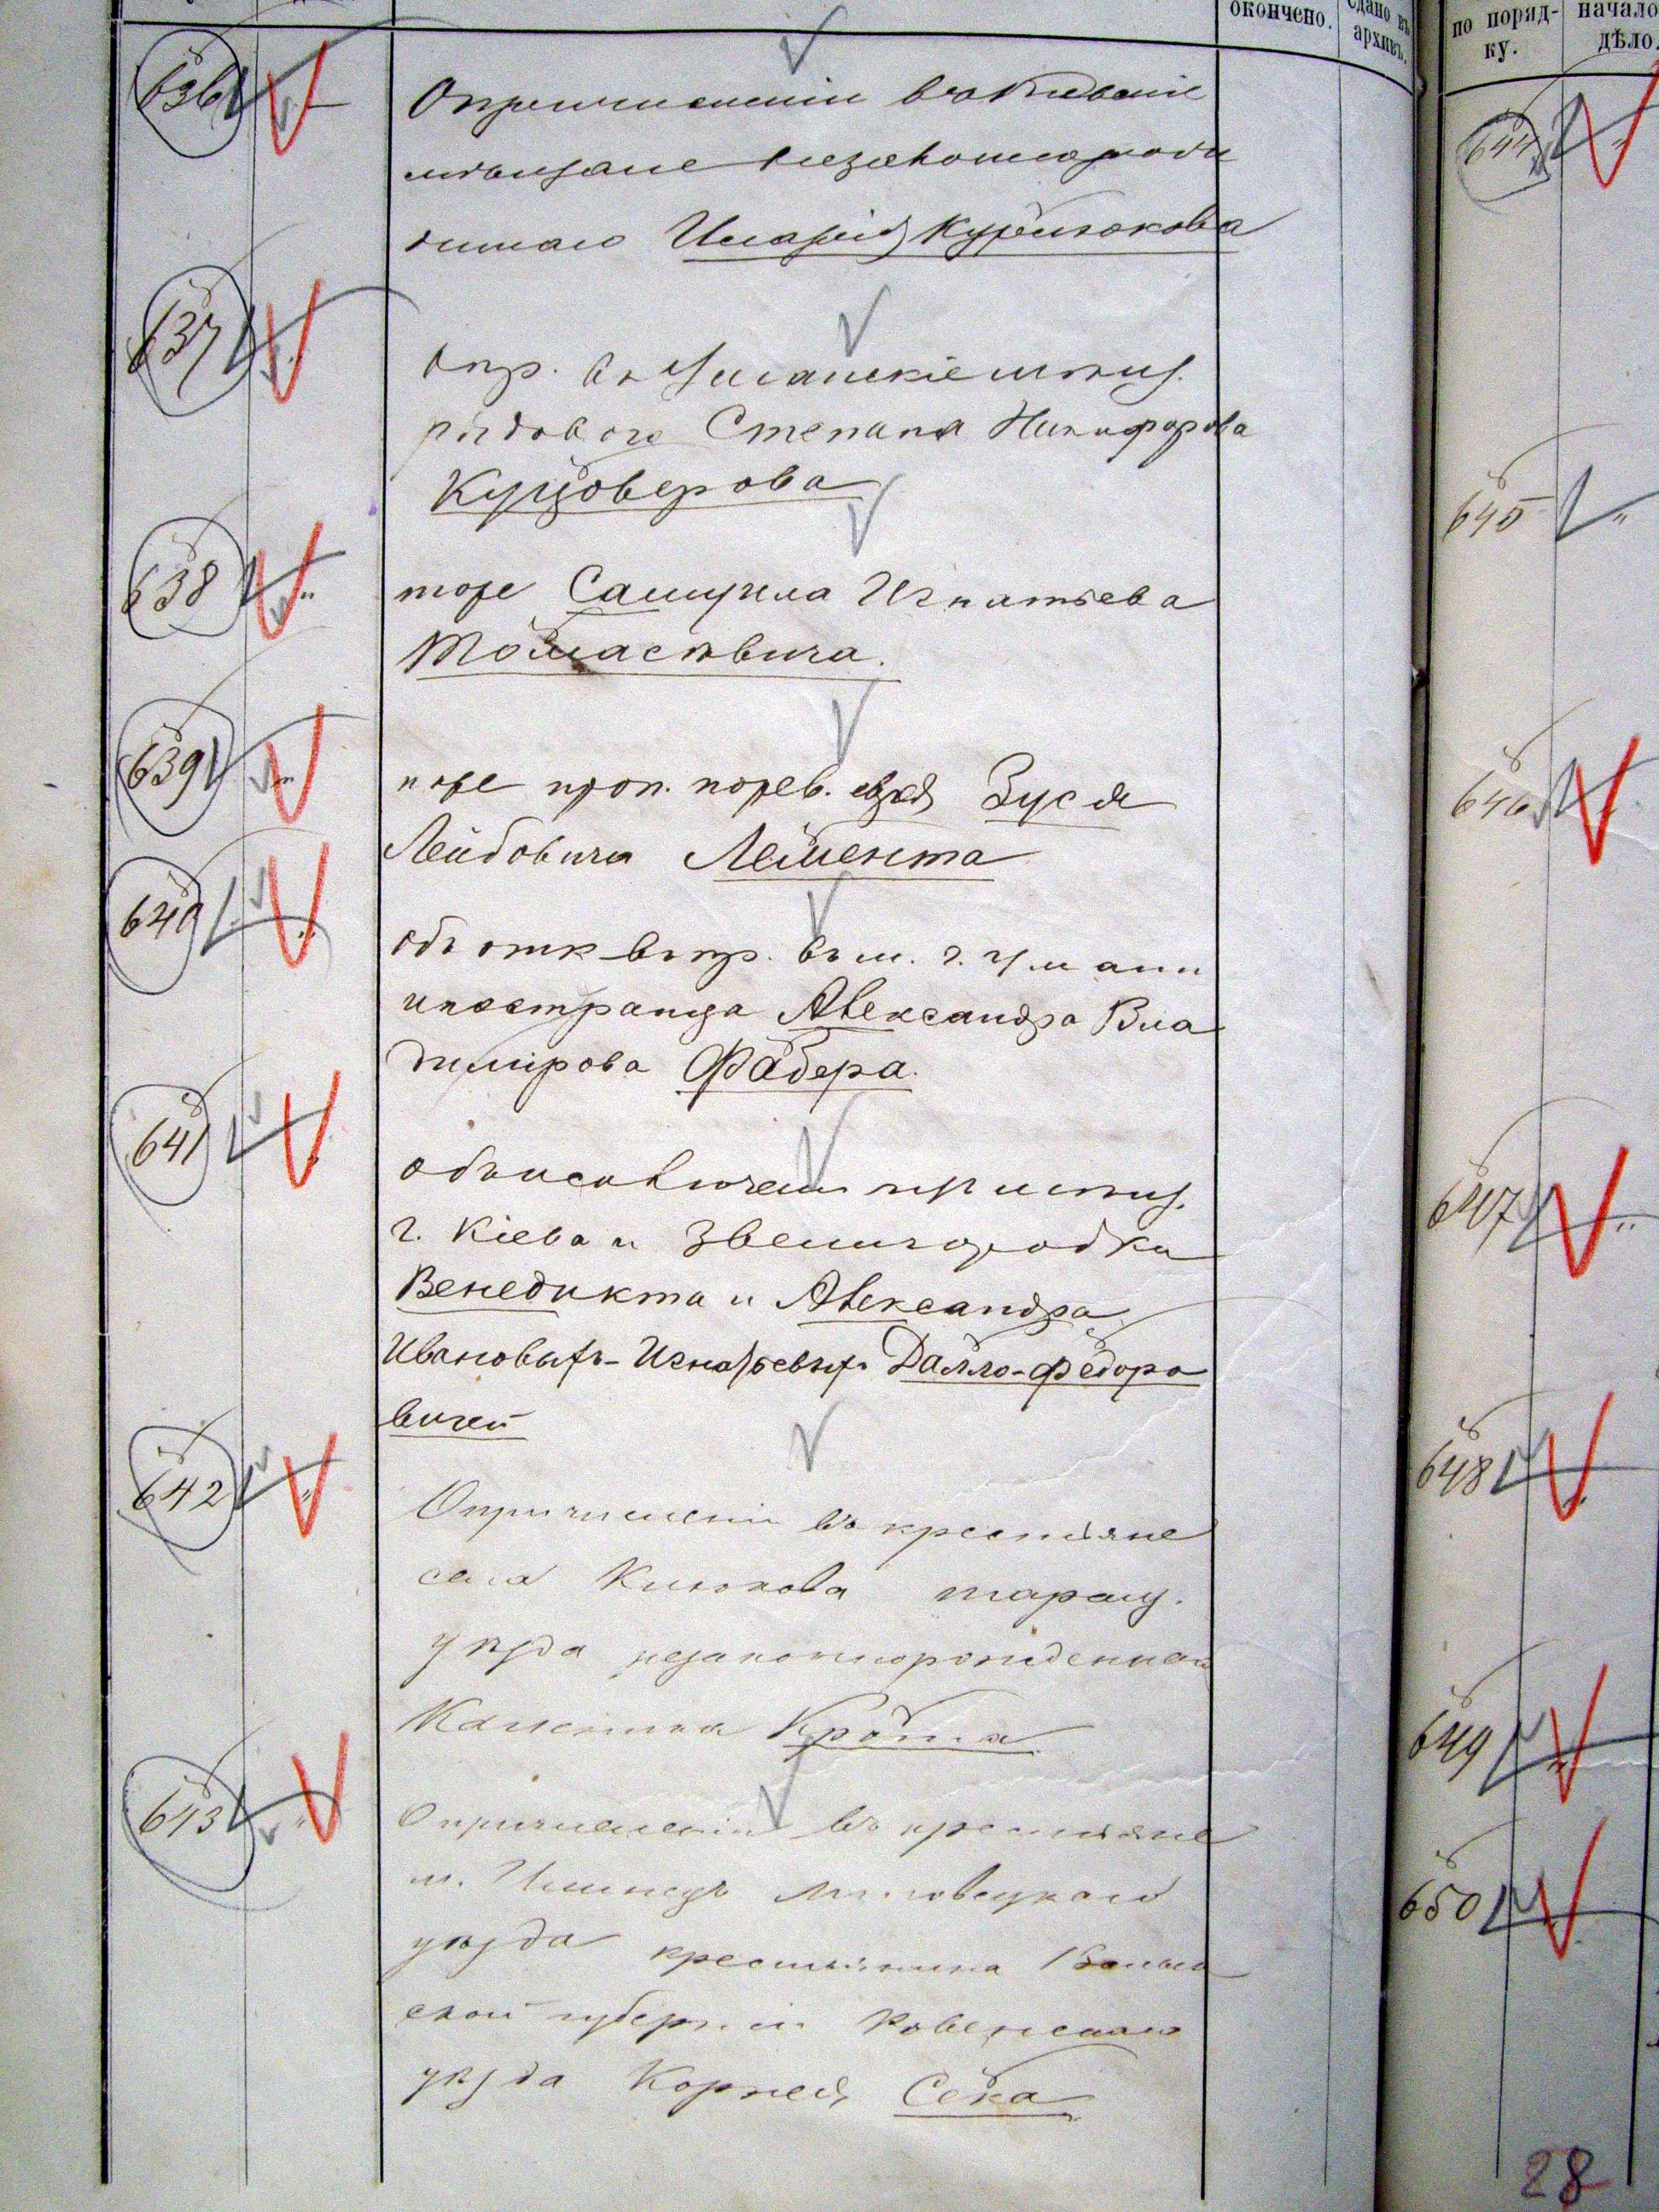 окончено.
сдано въ архивъ.
по поряд-
ку.
начало
дѣло.
636
О причисленіи въ Кіевскіе
мѣщане незаконнорож
деннаго Иларія Курдюкова
637
о пр. въ Уманскіе мѣщ.
рядового Степана Никифорова
Куцоверова
638
тоже Самуила Игнатьева
Томасевича.
639
тоже проп. порев. еврея Зуся
Лейбовича Лемента
640
объ отк въ пр. въ м. г. Умани
иностранца Александра Вла
димирова Фабера.
641
объ исключеніи изъ мѣщ.
г. Кіева и Звенигородки
Венедикта и Александра
Ивановыхъ-Игнатьевыхъ Далло-Федоро
вичей
642
О причисленіи въ крестьяне
села Кислокова таращ.
уѣзда незаконнорожденнаго
Крота
643
О причисленіи въ крестьяне
м. Липовецкаго
уѣзда крестьянина Волын
ской губерніи Ровенскаго
уѣзда Корнея Сека
644
645
646
647
648
649
650
28